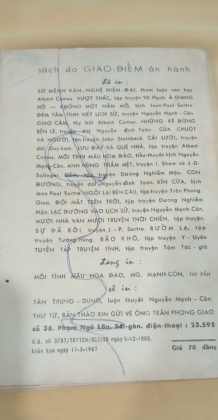 sách do GIAO ĐIỂM ấn hành
đã in :
SỨ MỆNH VĂN-NGHỆ HIỆN ĐẠI, tham luận văn học
Albert Camus. VƯỢT THÁC, tập truyện Võ Hạnh. À GIANG
HỒ — KHÔNG MỘT NẤM MỒ, kịch Jean-Paul Sartre.
ĐÊM TÂM TÌNH VIẾT LỊCH SỬ, truyện Nguyễn Mạnh Côn.
GIAO CẢM, tùy bút Albert Camus. NHỮNG KẺ ĐỨNG
BÊN LỀ, truyện dài Nguyễn-đình Toàn. CỦA CHUỘT
VÀ NGƯỜI, truyện John Steinbeck. CÁI LƯỚI, truyện
dài Duy-Lam. LƯU ĐÀY VÀ QUÊ NHÀ, tập truyện Albert
Camus. MỐI TÌNH MÀU HOA ĐÀO, tiểu-thuyết kịch Nguyễn
Mạnh-Côn. ANH HÙNG THẤM MỆT, truyện I. Shaw và J.-D.
Salinger. ĐÊM, tập truyện Dương Nghiễm Mậu. CON
ĐƯỜNG, truyện dài Nguyễn-đình Toàn. KÍN CỬA, kịch
Jean Paul Sartre. NGÔI LẠI BÊN CẦU, tập truyện Trần Phong
Giao. ĐÔI MẮT TRÊN TRỜI, tập truyện Dương Nghiễm
Mậu. LẠC ĐƯỜNG VÀO LỊCH SỬ, truyện Nguyễn Mạnh Côn.
MƯỜI NHÀ VĂN MƯỜI TRUYỆN THỜI CHIẾN, tập truyện.
SỰ ĐÃ RỒI, truyện J.-P. Sartre. BƯỚM LẠ, tập
truyện Tường-Hùng. BÃO KHÔ, tập truyện Y - Uyên
TUYỂN TẬP TRUYỆN TÌNH, tập truyện Tám Tác - giả
đang in :
MỐI TÌNH MÀU HOA ĐÀO, NG. MẠNH CÔN, tái bản
sẽ in :
TÂN TRUNG - DUNG, luận thuyết Nguyễn Mạnh - Côn.
THƯ TỪ, BẢN THẢO XIN GỬI VỀ ÔNG TRẦN PHONG GIAO
số 38, Phạm Ngũ Lão, Sài-gòn, điện-thoại : 23.595
Giá 70 đồng